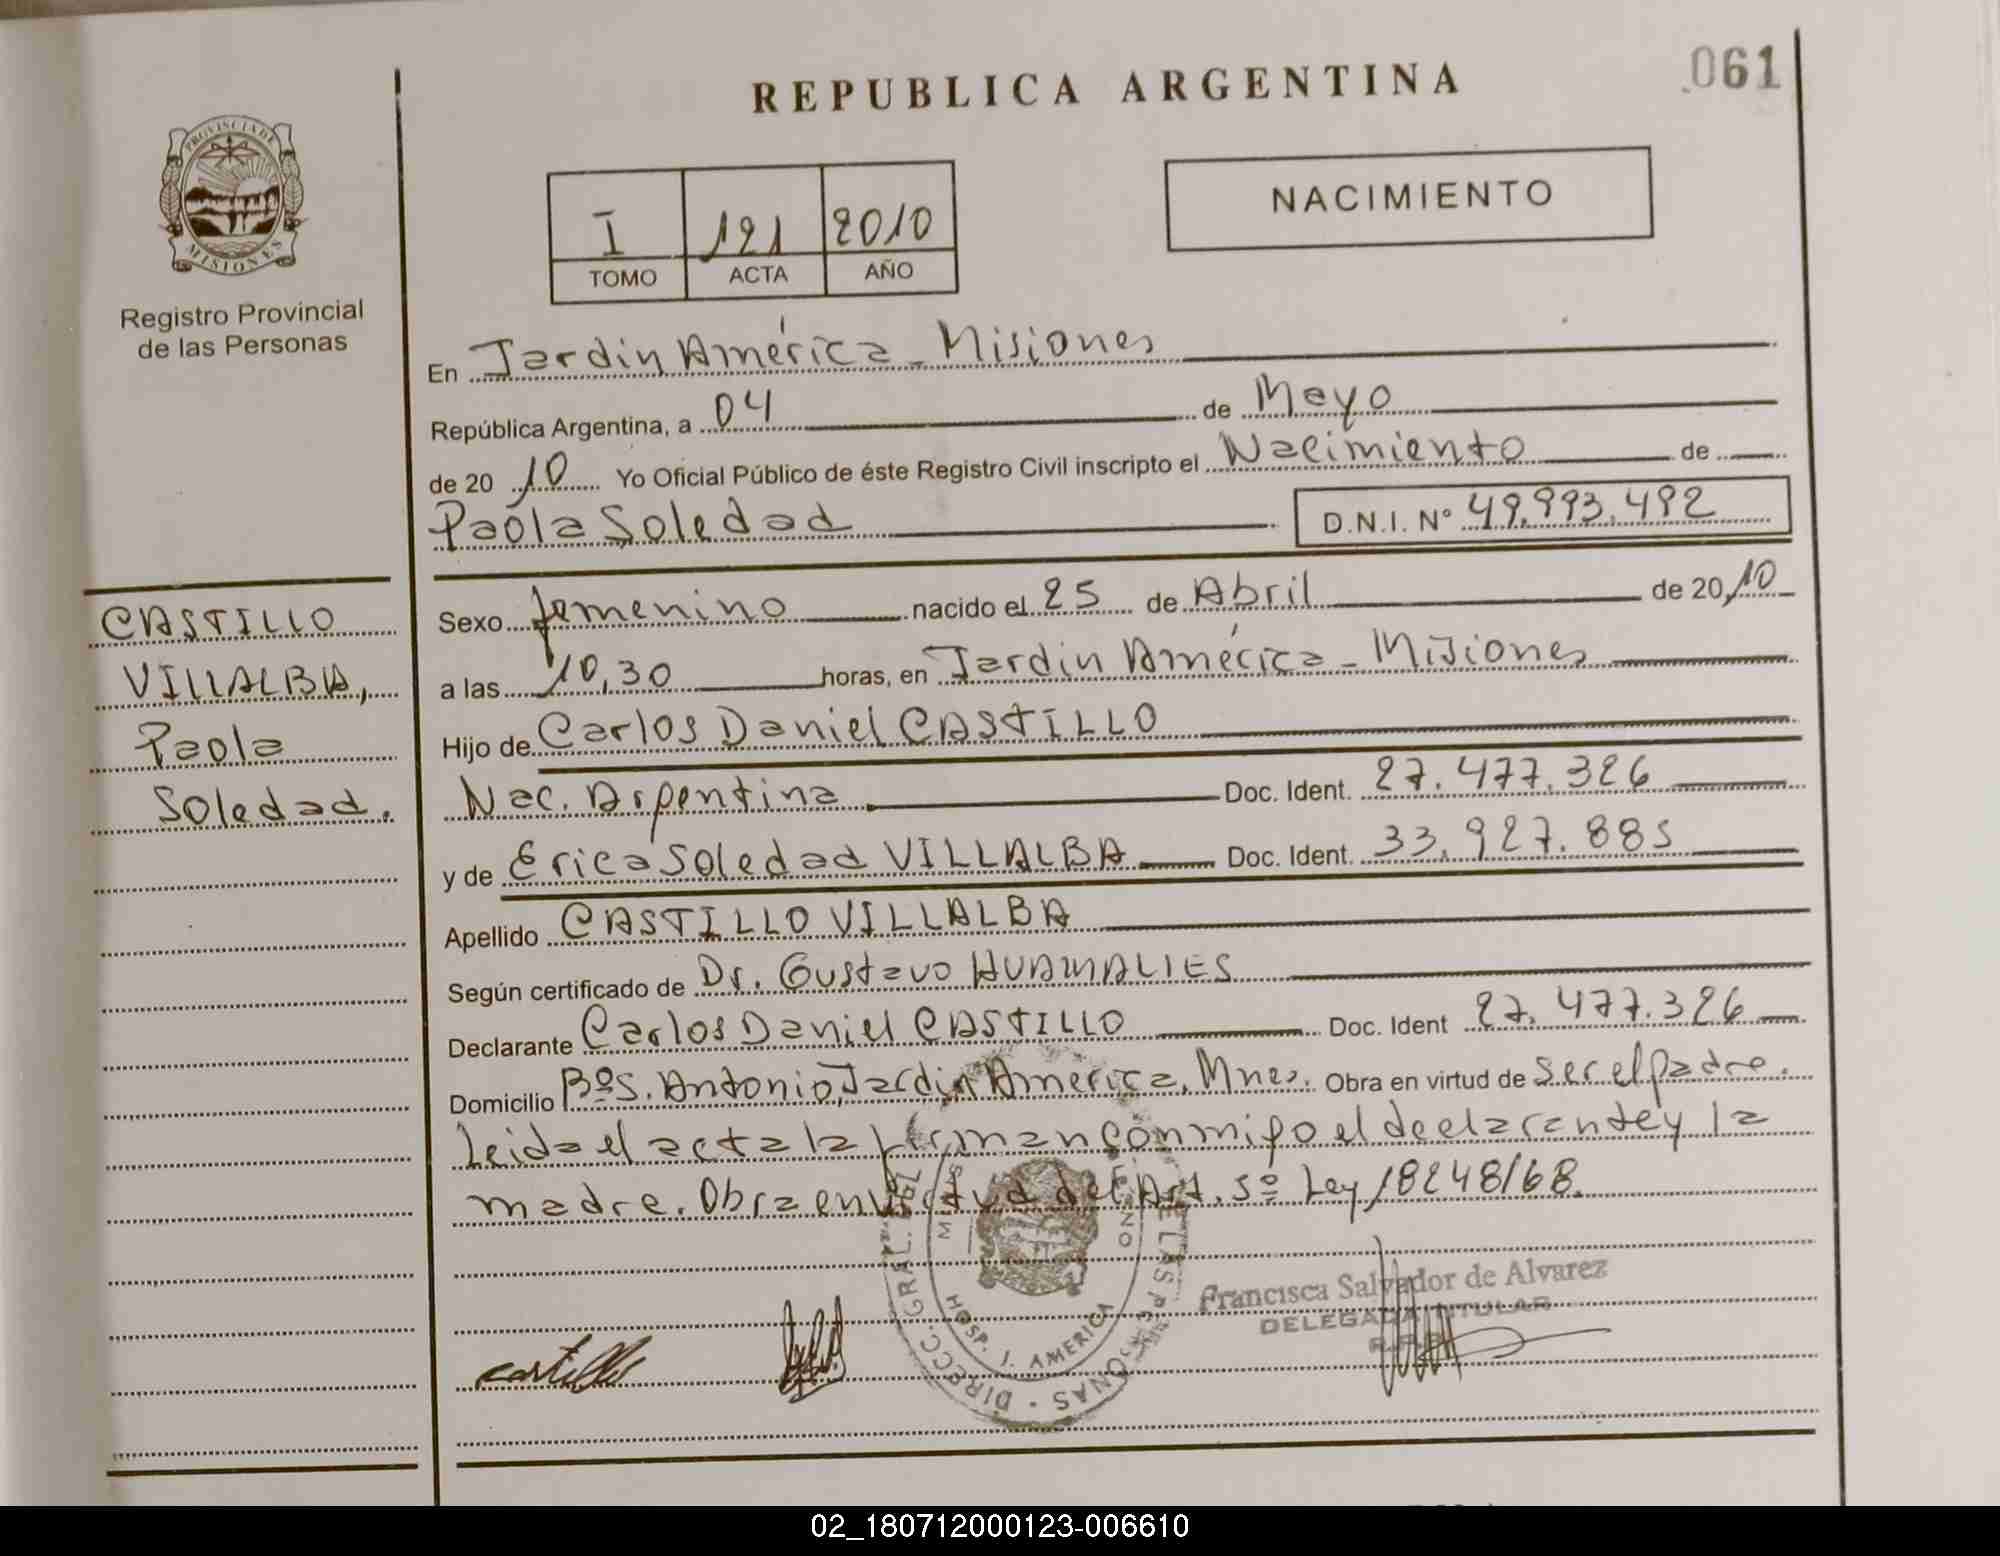 REPUBLICA ARGENTINA
061
PROVINCIA DE
MISIONES
Registro Provincial
de las Personas
I 121 2010
TOMO ACTA AÑO
NACIMIENTO
En Jardin América - Misiones
República Argentina, a 04 de Mayo
de 20 10 Yo Oficial Público de éste Registro Civil inscripto el Nacimiento de
Paola Soledad D.N.I. Nº 49.993.492
CASTILLO
VILLALBA,
Paola
Soledad.
Sexo femenino nacido el 25 de Abril de 20 10
a las 10,30 horas, en Jardin América - Misiones
Hijo de Carlos Daniel CASTILLO
Nac. Argentina Doc. Ident. 27.477.326
y de Erica Soledad VILLALBA Doc. Ident. 33.927.885
Apellido CASTILLO VILLALBA
Según certificado de Dr. Gustavo HUAMALIES
Declarante Carlos Daniel CASTILLO Doc. Ident 27.477.326
Domicilio Bº S. Antonio, Jardin America, Mnes. Obra en virtud de ser el padre.
Leida el acta la firman conmigo el declarante y la
madre. Obra en virtud del Art. 5º Ley 18248/68.
Francisca Salvador de Alvarez
DELEGADA TITULAR
R.P.P.
castillo
HOSP. J. AMERICA
02_180712000123-006610